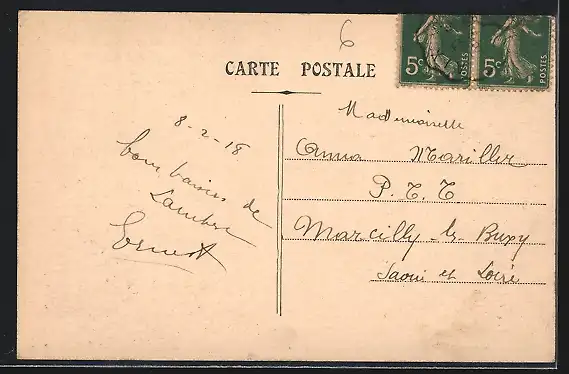 6
CARTE POSTALE
5c POSTES
5c POSTES
8-2-18
bons baisers de
Ernest
Mademoiselle
Anna Mariller
P. T. T
Marcilly-le Buxy
Saone et Loire